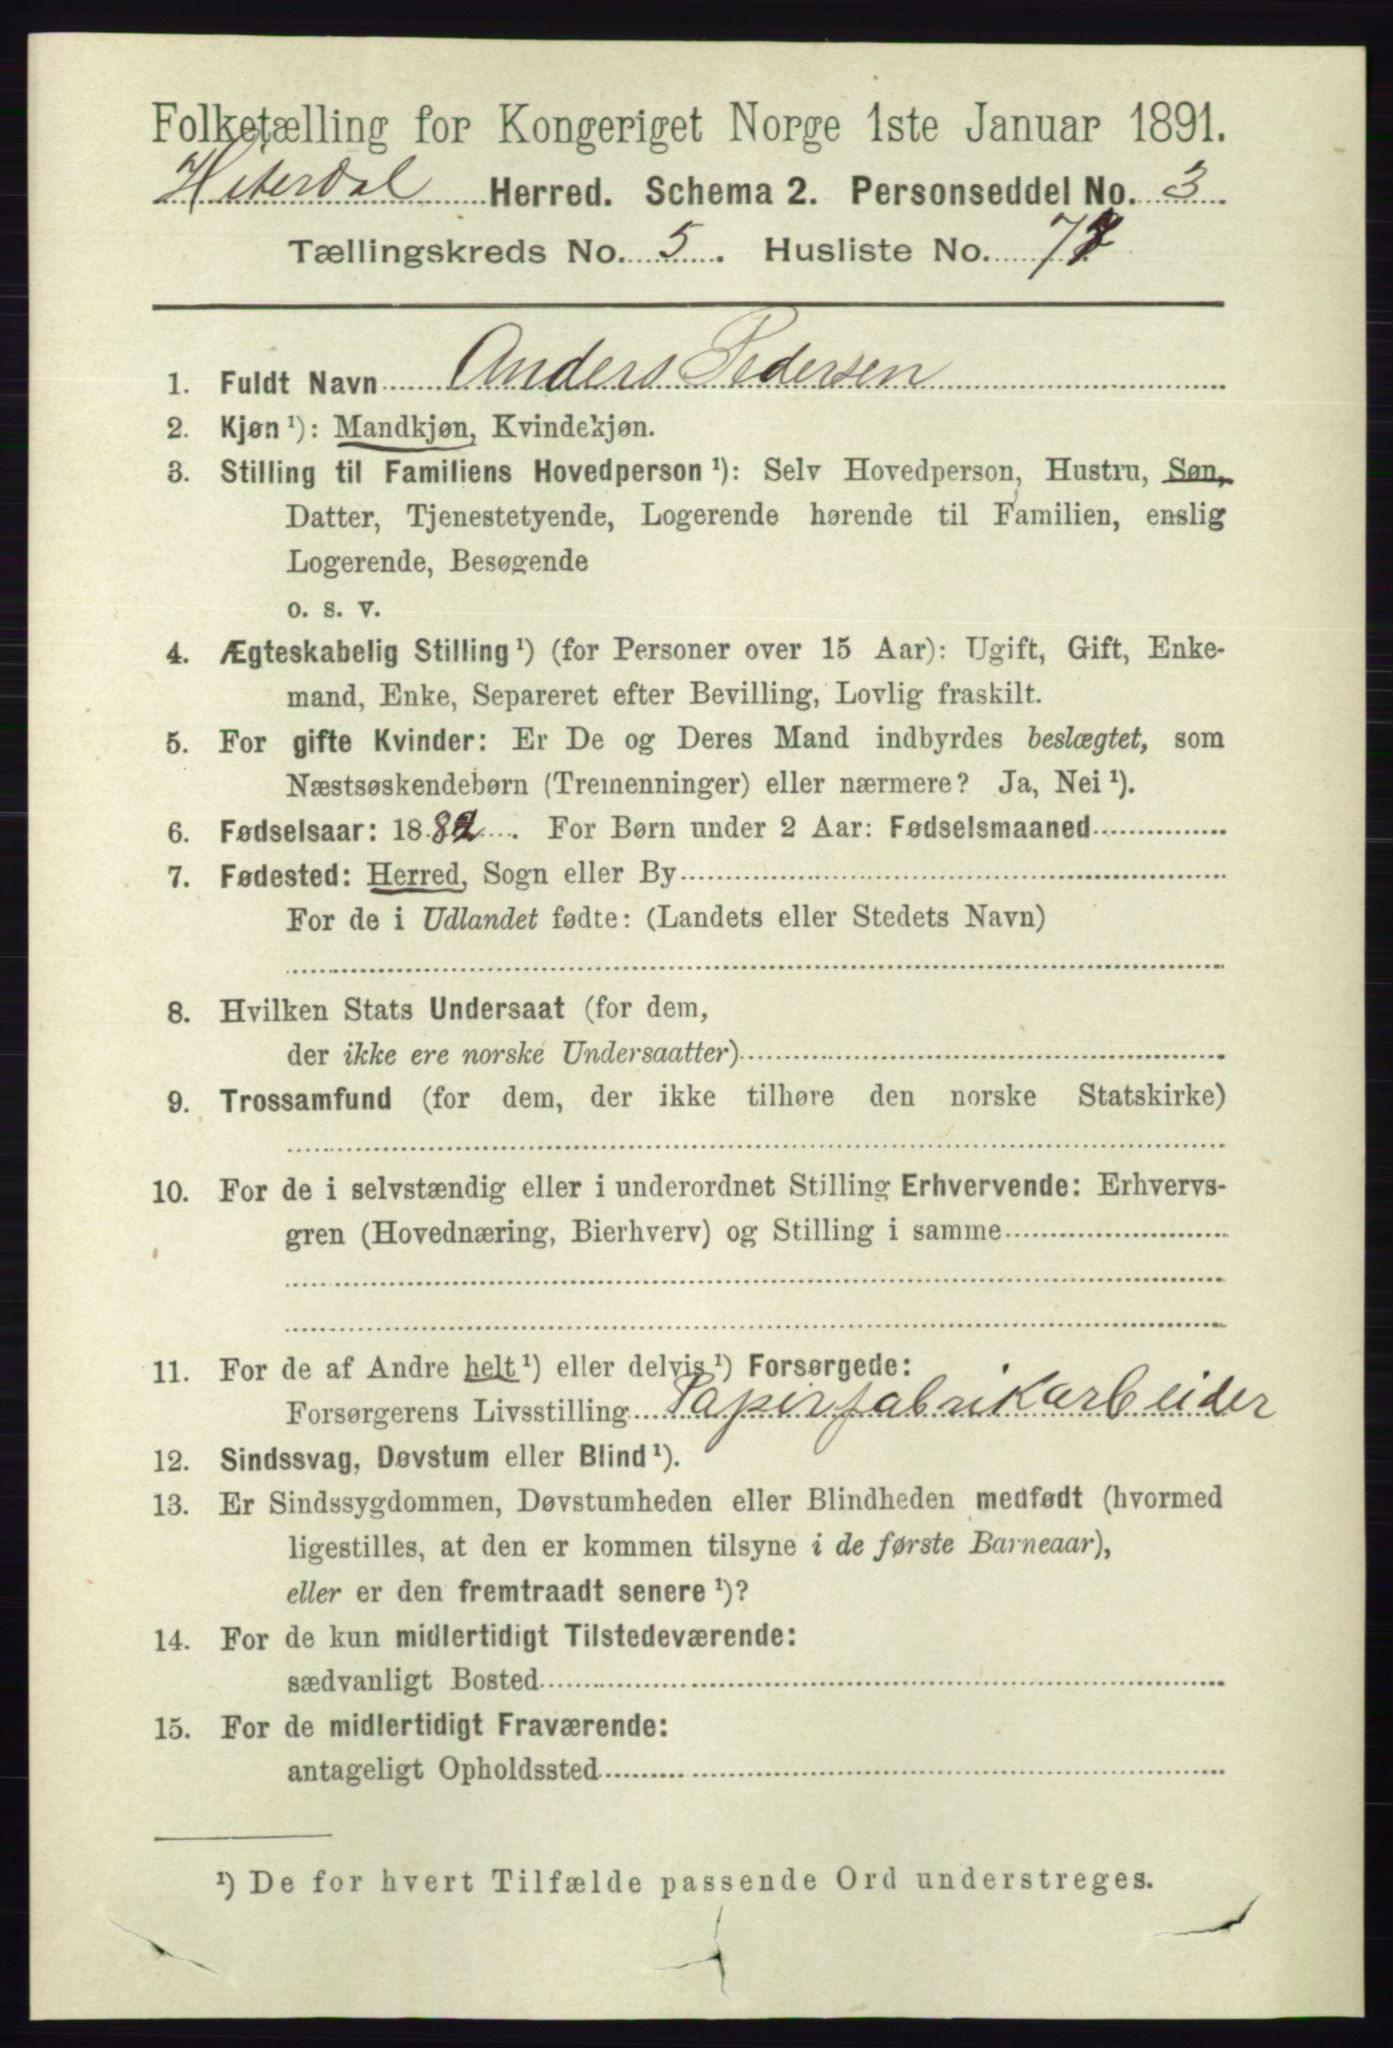 Folketælling for Kongeriget Norge 1ste Januar 1891.
Hiterdal Herred. Schema 2. Personseddel No. 3
Tællingskreds No. 5. Husliste No.
1. Fuldt Navn Anders Pedersen
2. Kjøn ¹): Mandkjøn, Kvindekjøn.
3. Stilling til Familiens Hovedperson ¹): Selv Hovedperson, Hustru, Søn,
Datter, Tjenestetyende, Logerende hørende til Familien, enslig
Logerende, Besøgende
o. s. v.
4. Ægteskabelig Stilling ¹) (for Personer over 15 Aar): Ugift, Gift, Enke-
mand, Enke, Separeret efter Bevilling, Lovlig fraskilt.
5. For gifte Kvinder: Er De og Deres Mand indbyrdes beslægtet, som
Næstsøskendebørn (Tremenninger) eller nærmere? Ja, Nei ¹).
6. Fødselsaar: 1882. For Børn under 2 Aar: Fødselsmaaned
7. Fødested: Herred, Sogn eller By
For de i Udlandet fødte: (Landets eller Stedets Navn)
8. Hvilken Stats Undersaat (for dem,
der ikke ere norske Undersaatter)
9. Trossamfund (for dem, der ikke tilhøre den norske Statskirke)
10. For de i selvstændig eller i underordnet Stilling Erhvervende: Erhvervs-
gren (Hovednæring, Bierhverv) og Stilling i samme
11. For de af Andre helt ¹) eller delvis ¹) Forsørgede:
Forsørgerens Livsstilling Papirfabrikarbeider
12. Sindssvag, Døvstum eller Blind ¹).
13. Er Sindssygdommen, Døvstumheden eller Blindheden medfødt (hvormed
ligestilles, at den er kommen tilsyne i de første Barneaar),
eller er den fremtraadt senere ¹)?
14. For de kun midlertidigt Tilstedeværende:
sædvanligt Bosted
15. For de midlertidigt Fraværende:
antageligt Opholdssted
¹) De for hvert Tilfælde passende Ord understreges.